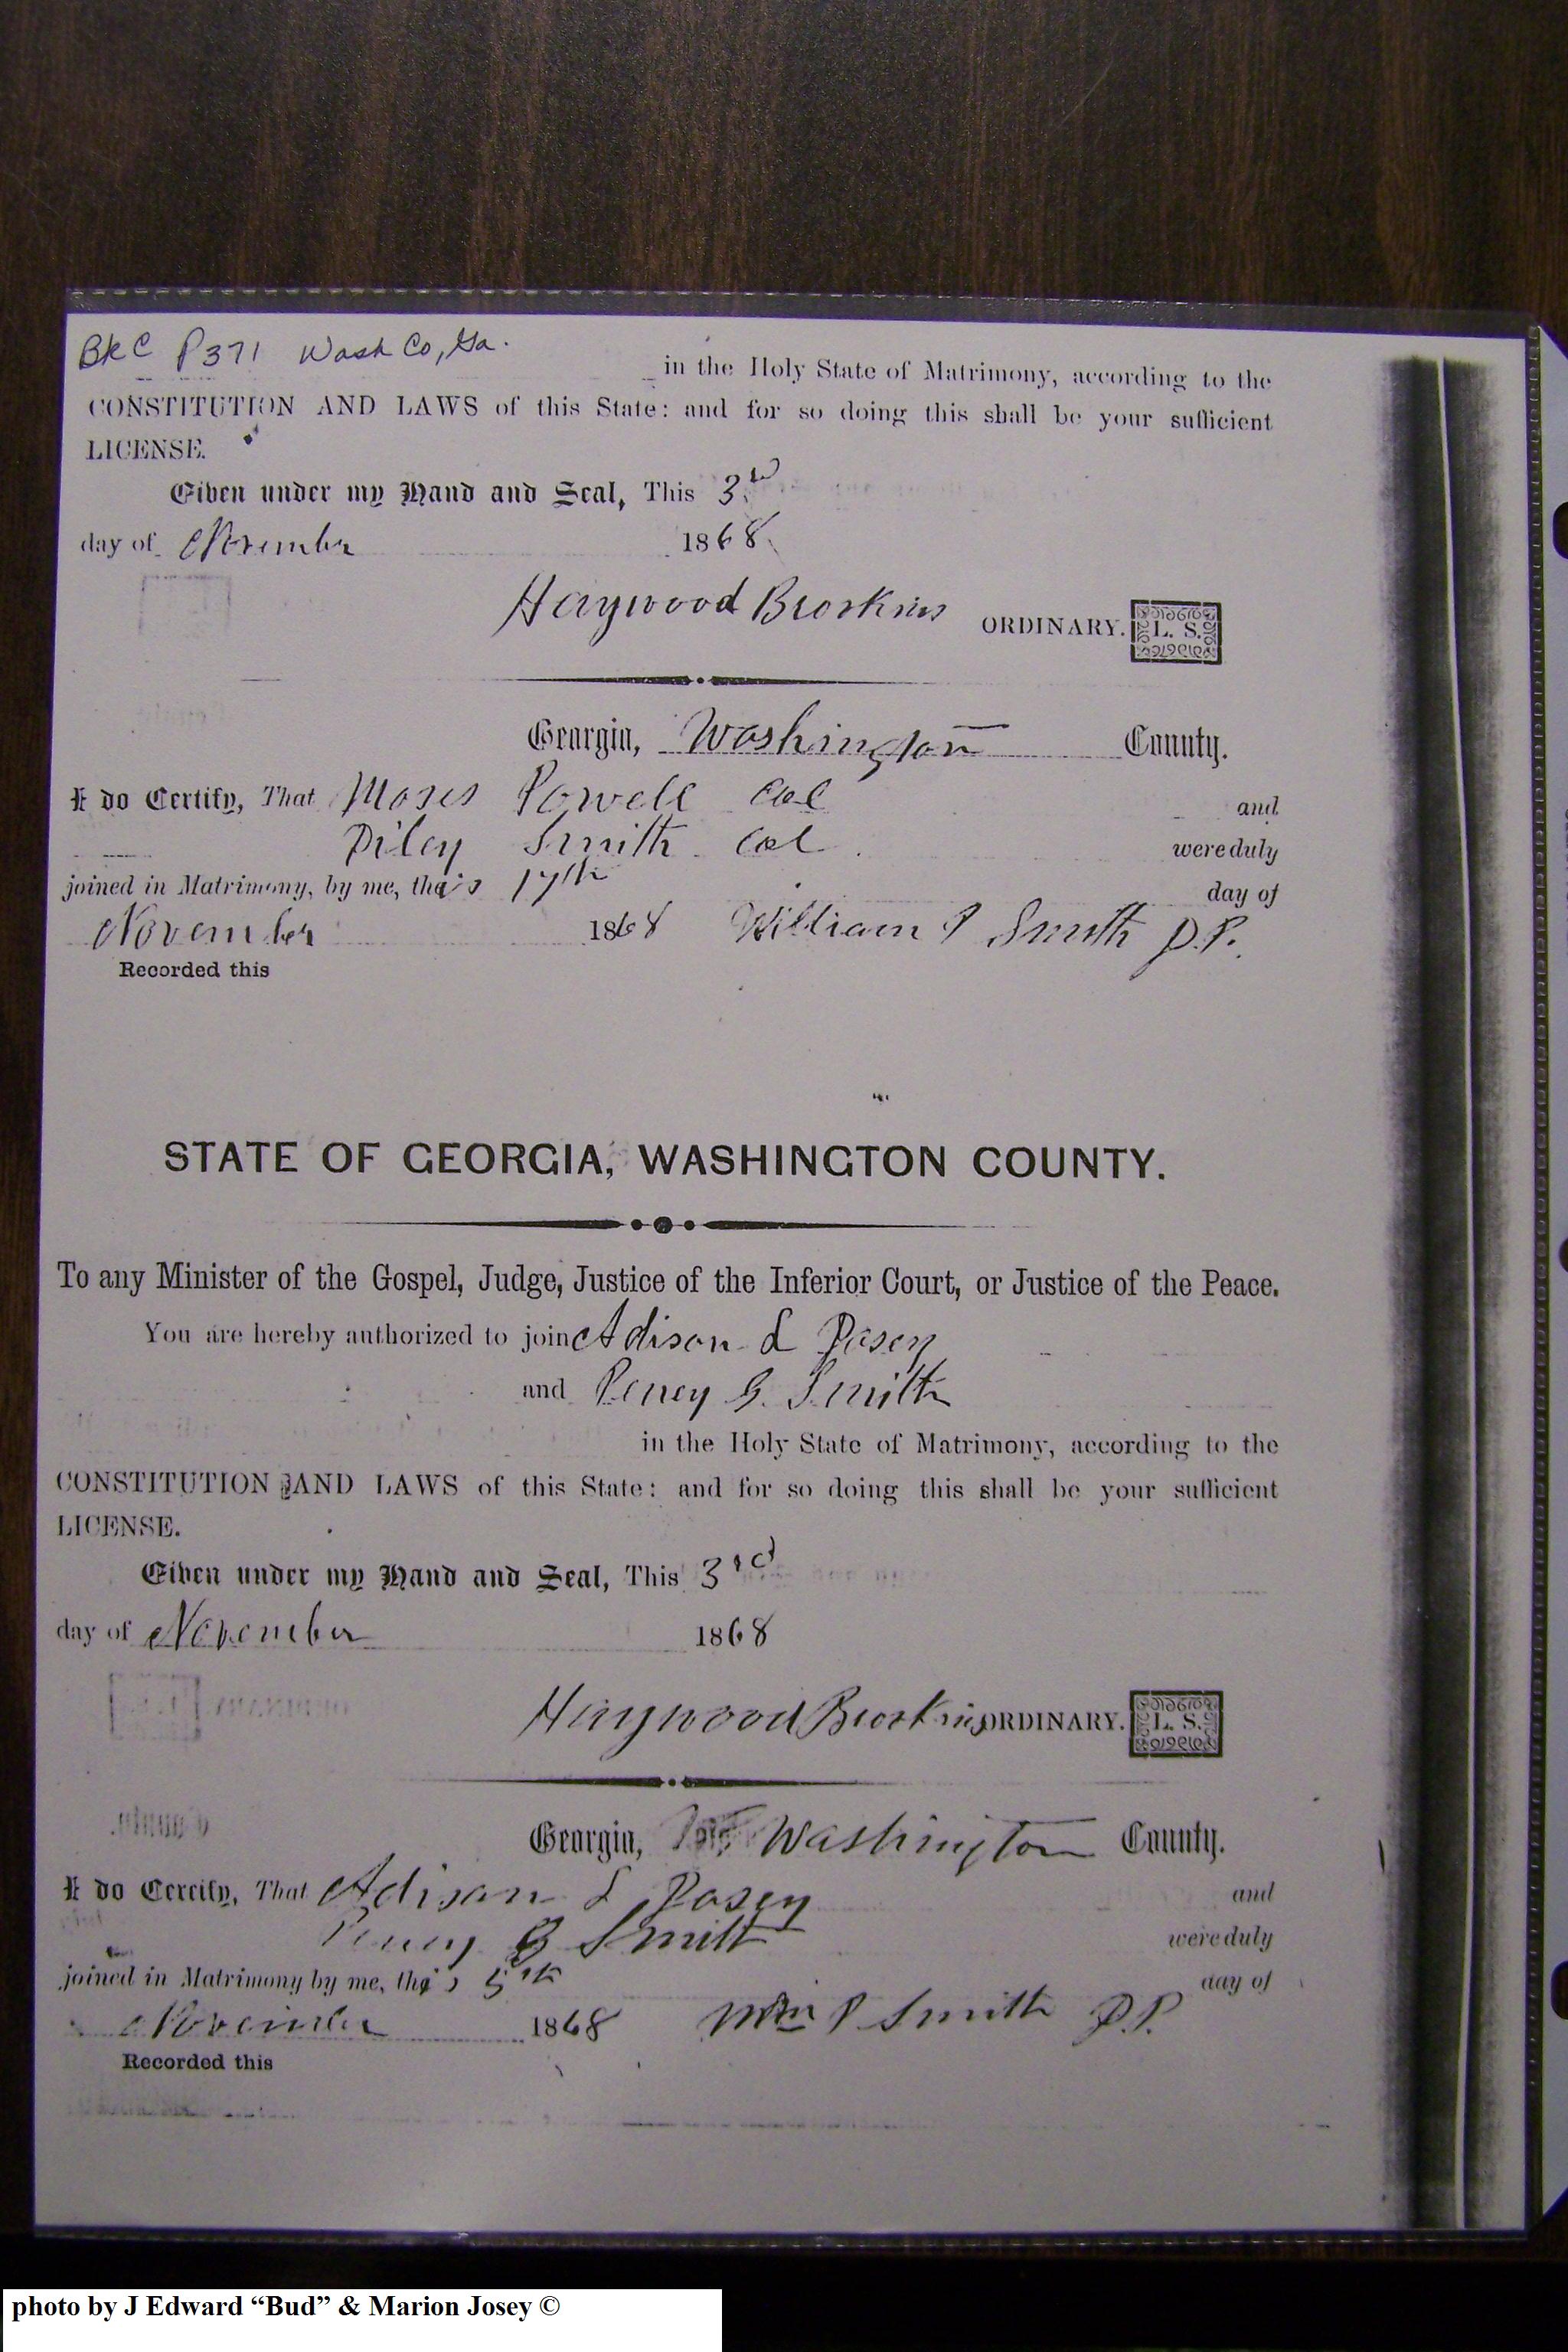 BkC P371 Wash Co, Ga.
in the Holy State of Matrimony, according to the
CONSTITUTION AND LAWS of this State: and for so doing this shall be your sufficient
LICENSE.
Given under my Hand and Seal, This 3rd
day of November 1868
Haywood Brookins ORDINARY. L. S.
Georgia, Washington County.
I do Certify, That Moses Powell Col and
Diley Smith Col were duly
joined in Matrimony, by me, this 17th day of
November 1868 William P Smith J.P.
Recorded this
STATE OF GEORGIA, WASHINGTON COUNTY.
To any Minister of the Gospel, Judge, Justice of the Inferior Court, or Justice of the Peace.
You are hereby authorized to join Adison L Posey
and Peney G. Smith
in the Holy State of Matrimony, according to the
CONSTITUTION AND LAWS of this State: and for so doing this shall be your sufficient
LICENSE.
Given under my Hand and Seal, This 3rd
day of November 1868
Haywood Brookins ORDINARY. L. S.
Georgia, Washington County.
I do Certify, That Adison L Posey and
Peney G Smith were duly
joined in Matrimony by me, this 5th day of
November 1868 Wm P Smith J.P.
Recorded this
photo by J Edward “Bud” & Marion Josey ©